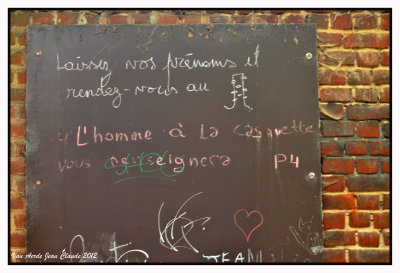 Laissez vos prénoms et
rendez-vous au
L'homme à la casquette
vous renseignera P4
JEAN
Van Aerde Jean Claude 2012